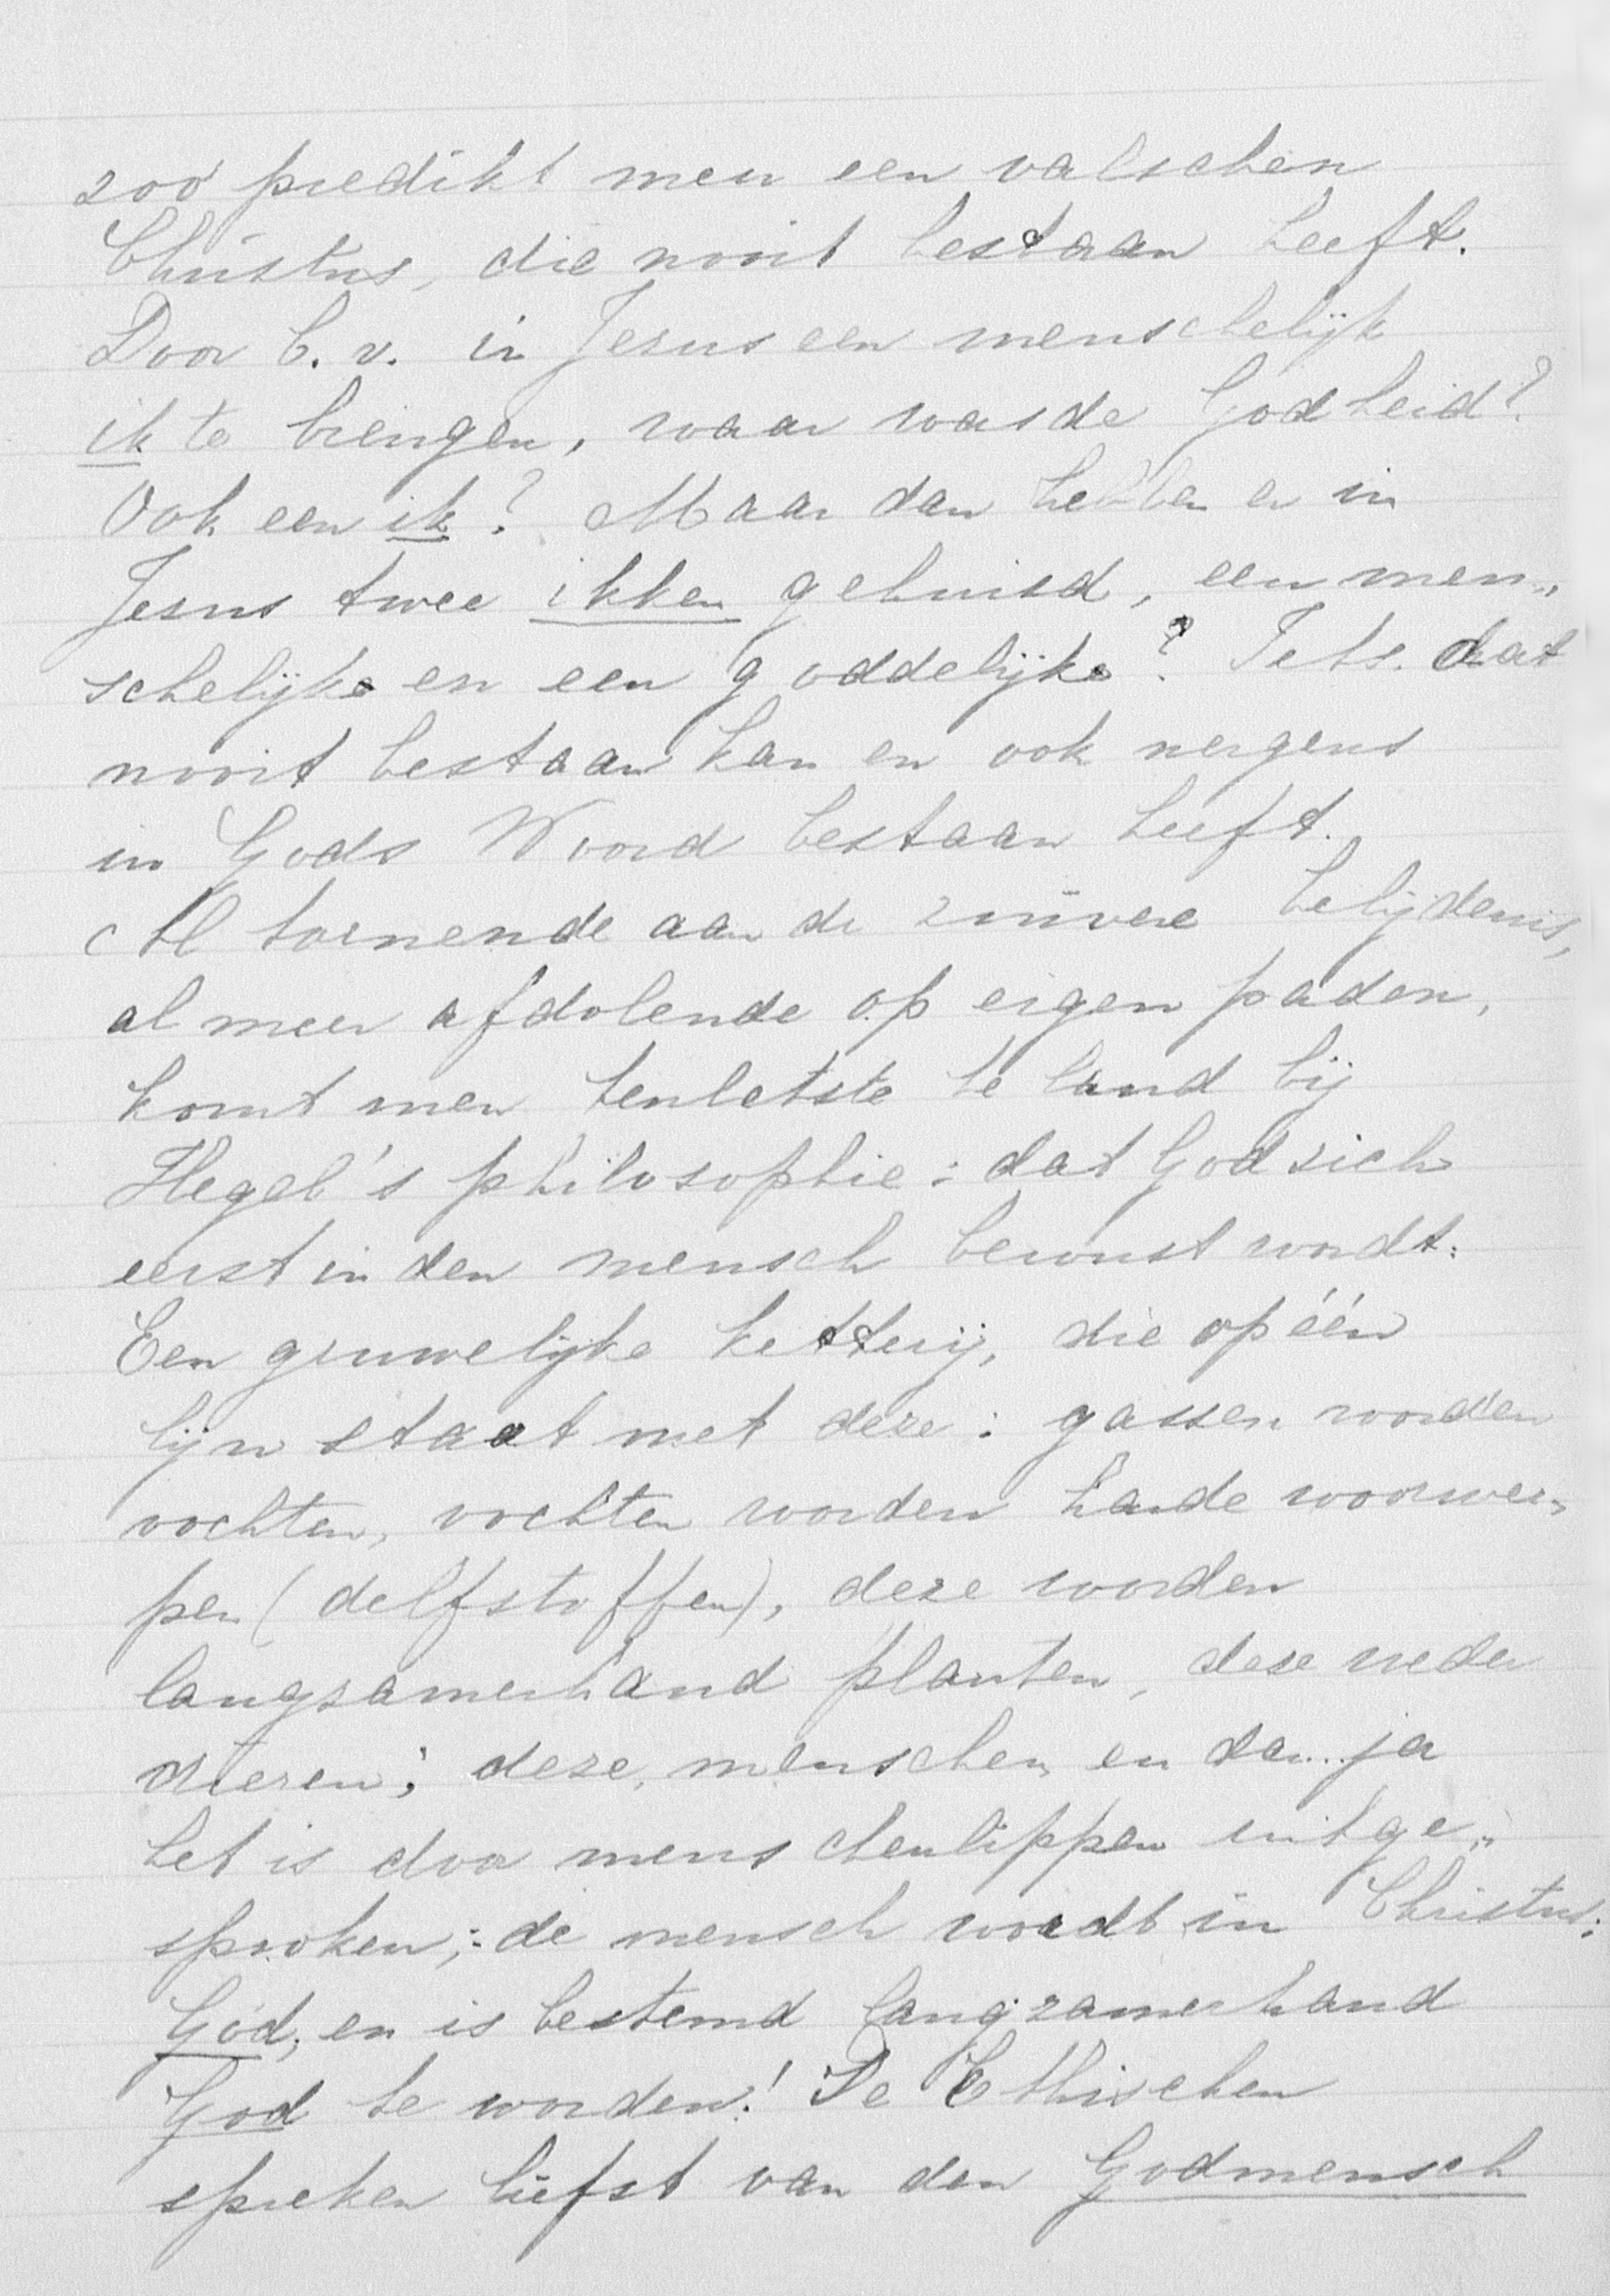 zoo predikt men een valschen
Christus, die nooit bestaan heeft.
Door b.v. in Jezus een menschelijk
ik te brengen, waar was de Godheid?
Ook een ik? Maar dan hebben er in
Jesus twee ikken gehuisd, een men„
schelijke en een goddelijke? Iets dat
nooit bestaan kan en ook nergens
in Gods Woord bestaan heeft.
Al tornende aan de zuivere belijdenis,
al meer afdolende op eigen paden,
komt men tenletste te land bij
Hegel's philosophie: dat God zich
eerst in den mensch bewust wordt:
Een gruwelijke ketterij, die op één
lijn staat met deze: gassen worden
vochten, vochten worden harde voorwer„
pen (delfstoffen), deze worden
langzamerhand planten, deze weder
dieren; deze, menschen, en dan.. ja
het is door menschenlippen uitge„
sproken,: de mensch wordt in Christus:
God, en is bestemd langzamerhand
God te worden! De Ethischen
spreken liefst van den Godmensch